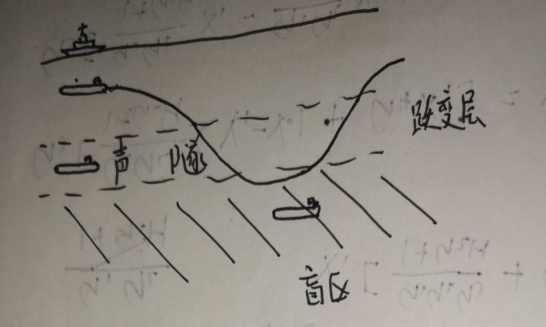 跃变层
声 隧
盲区